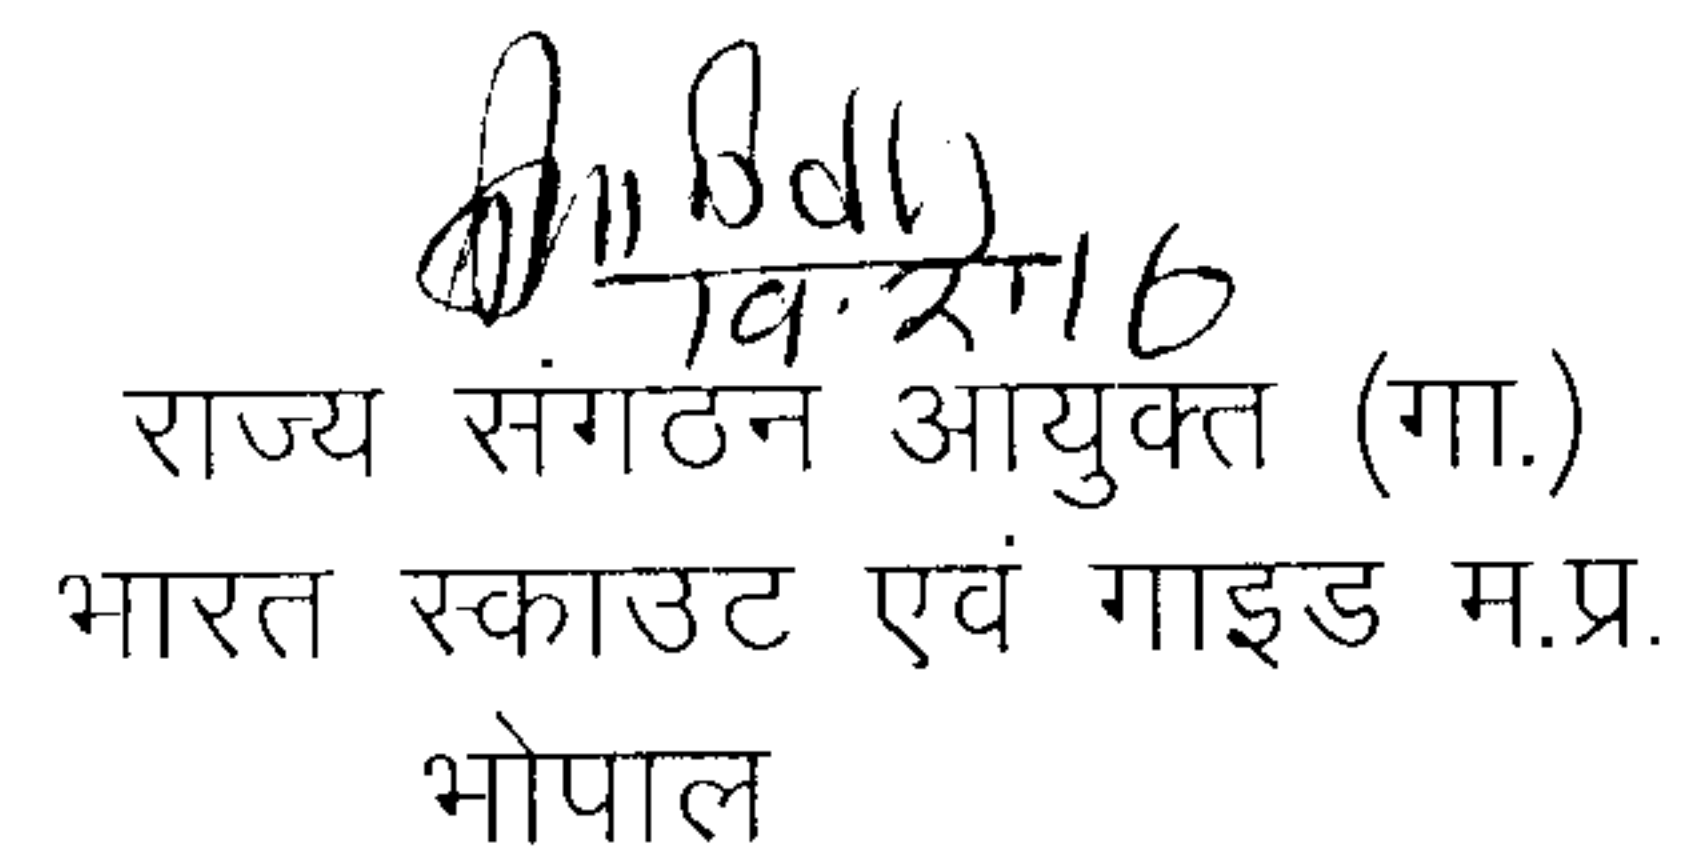 राज्य संगठन आयुक्त (गा.)
भारत स्काउट एवं गाइड म.प्र.
भोपाल